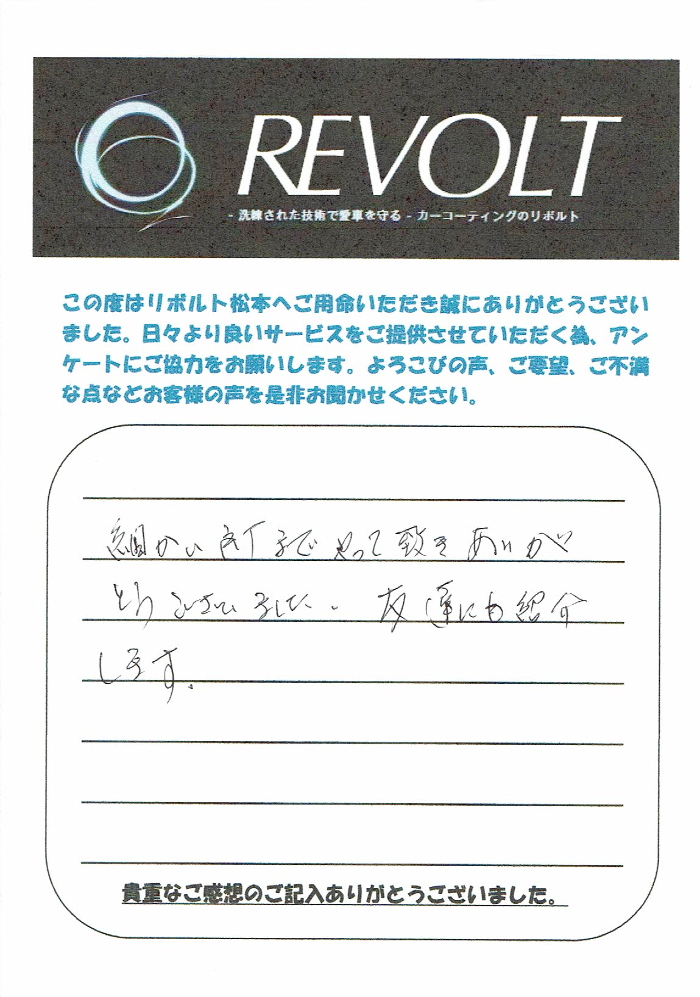 REVOLT
- 洗練された技術で愛車を守る - カーコーティングのリボルト
この度はリボルト松本へご用命いただき誠にありがとうござい
ました。日々より良いサービスをご提供させていただく為、アン
ケートにご協力をお願いします。よろこびの声、ご要望、ご不満
な点などお客様の声を是非お聞かせください。
細かい所までやって致きありが
とうございました。友達にも紹介
します。
貴重なご感想のご記入ありがとうございました。